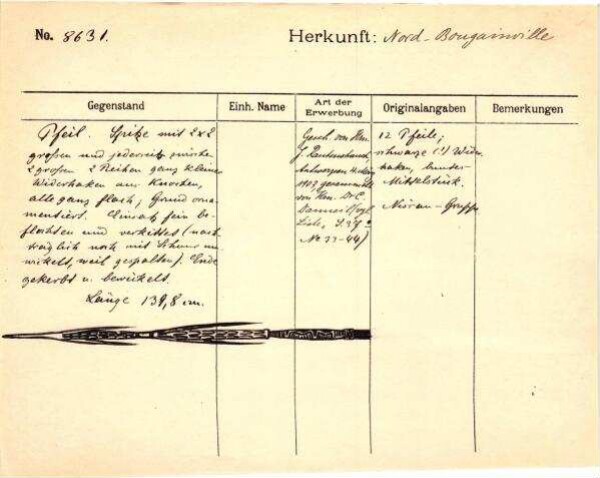 No. 8631.
Herkunft: Nord-Bougainville
Gegenstand
Einh. Name
Art der Erwerbung
Originalangaben
Bemerkungen
Pfeil. Spitze mit 2x2
großen und jederseits
2 großen 2 Reihen ganz kleine
Widerhaken aus Knochen,
alle ganz flach, Grund orna-
mentiert. Einsatz fein be-
flochten und verkittet (nach-
träglich noch mit Schnur um-
wickelt, weil gespalten). Ende
gekerbt u. bewickelt.
Länge 139,8 cm.
Gesch. von Hrn.
J.
Antwerpen
1907, gesammelt
von Hrn. Dr
Liste, S.
No 33-44)
12 Pfeile;
schwarze (!) Wider-
haken, bunter
Mittelstück.
Gruppe